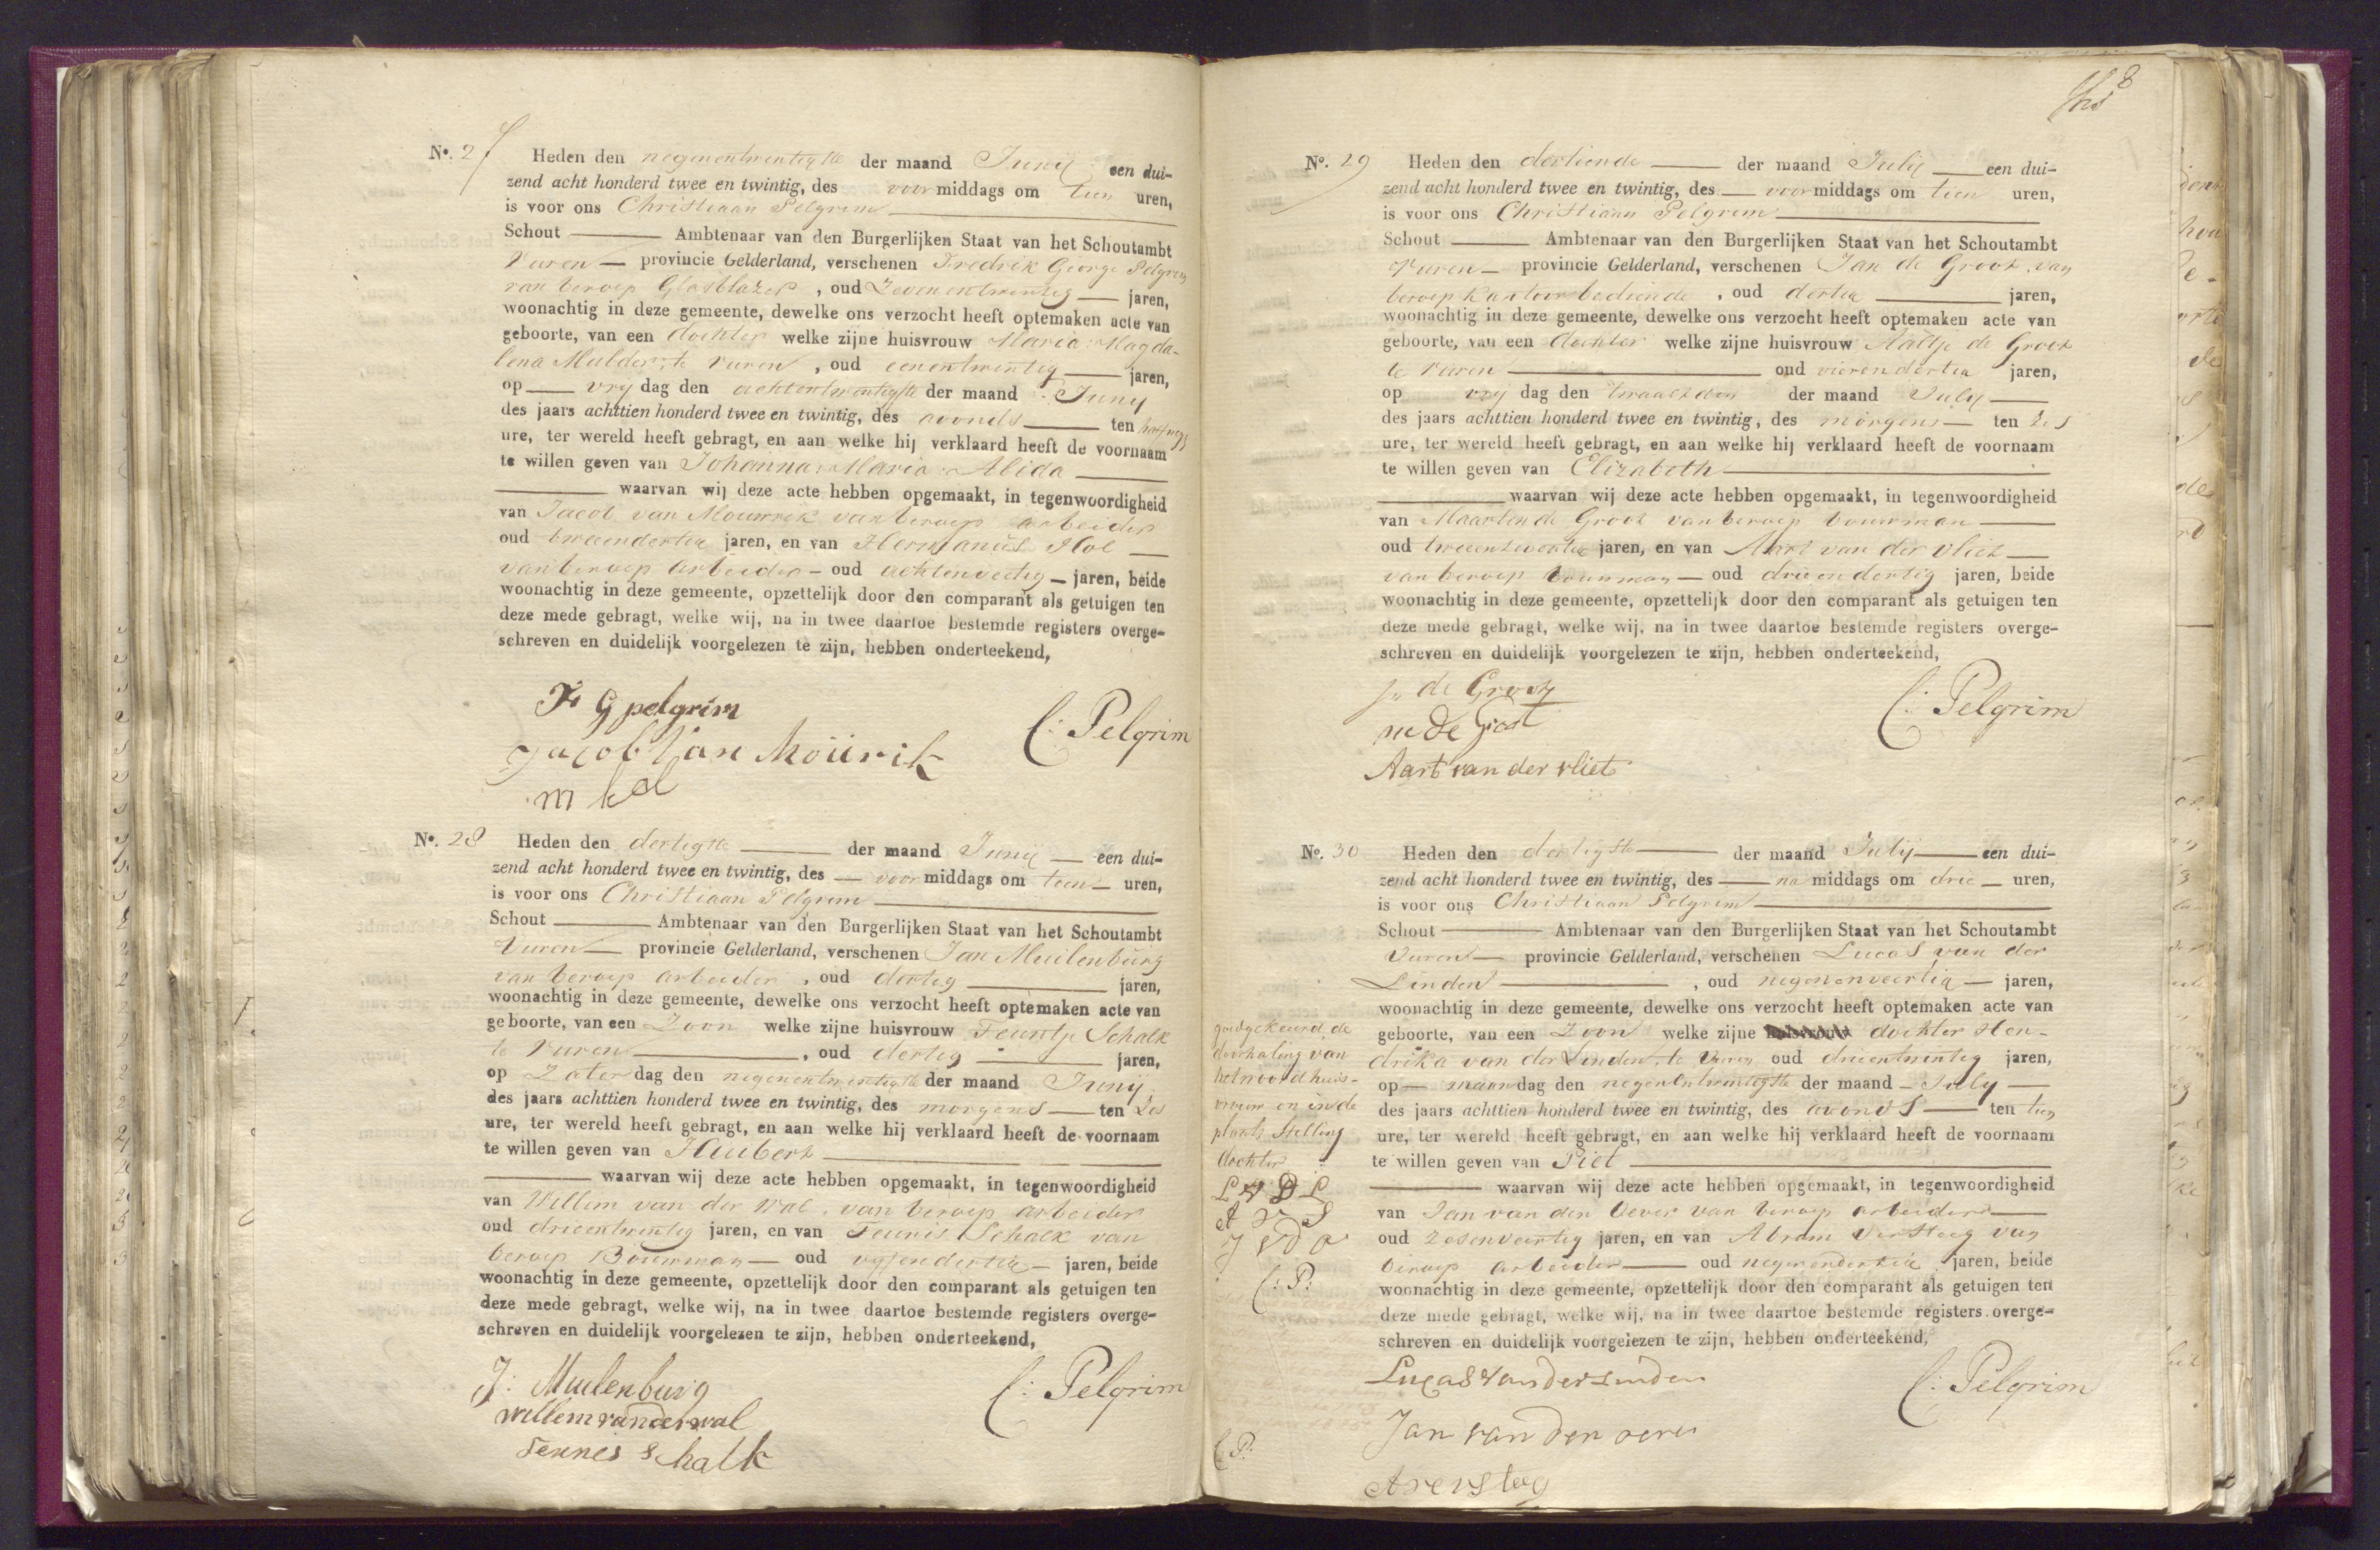 No. 27 Heden den negenentwintigste der maand Junij een dui-
zend acht honderd twee en twintig, des voor middags om tien uren,
is voor ons Christiaan Pelgrim
Schout Ambtenaar van den Burgerlijken Staat van het Schoutambt
Vuren provincie Gelderland, verschenen Fredrik George Pelgrim
van beroep Glasblazer, oud Zevenentwintig jaren,
woonachtig in deze gemeente, dewelke ons verzocht heeft optemaken acte van
geboorte, van een dochter welke zijne huisvrouw Maria Magda-
lena Mulder, te Vuren, oud eenentwintig jaren,
op vry dag den achtentwintigste der maand Juny
des jaars achttien honderd twee en twintig, des avonds ten
ure, ter wereld heeft gebragt, en aan welke hij verklaard heeft de voornaam
te willen geven van Johanna Maria Alida
waarvan wij deze acte hebben opgemaakt, in tegenwoordigheid
van Jacob van Mourik van beroep arbeider
oud tweendertig jaren, en van Hermanus Hol
van beroep arbeider oud achtenveertig jaren, beide
woonachtig in deze gemeente, opzettelijk door den comparant als getuigen ten
deze mede gebragt, welke wij, na in twee daartoe bestemde registers overge-
schreven en duidelijk voorgelezen te zijn, hebben onderteekend,
F G pelgrim
C: Pelgrim
Jacob Van Moürik
No. 28 Heden den dertigste der maand Junij een dui-
zend acht honderd twee en twintig, des voor middags om tien uren,
is voor ons Christiaan Pelgrim
Schout Ambtenaar van den Burgerlijken Staat van het Schoutambt
Vuren provincie Gelderland, verschenen Jan Muilenburg
van beroep arbeider, oud dertig jaren,
woonachtig in deze gemeente, dewelke ons verzocht heeft optemaken acte van
geboorte, van een Zoon welke zijne huisvrouw Teuntje Schalk
te Vuren, oud dertig jaren,
op Zater dag den negenentwintigste der maand Junij
des jaars achttien honderd twee en twintig, des morgens ten Zes
ure, ter wereld heeft gebragt, en aan welke hij verklaard heeft de voornaam
te willen geven van Huibert
waarvan wij deze acte hebben opgemaakt, in tegenwoordigheid
van Willem van der Wal, van beroep arbeider
oud drieentwintig jaren, en van Teunis Schalk van
beroep Bouwman oud vyfendertig jaren, beide
woonachtig in deze gemeente, opzettelijk door den comparant als getuigen ten
deze mede gebragt, welke wij, na in twee daartoe bestemde registers overge-
schreven en duidelijk voorgelezen te zijn, hebben onderteekend,
J: Muilenburg
C: Pelgrim
willem van der wal
Teunes Schalk
8
No. 29 Heden den dertiende der maand July een dui-
zend acht honderd twee en twintig, des voor middags om tien uren,
is voor ons Christiaan Pelgrim
Schout Ambtenaar van den Burgerlijken Staat van het Schoutambt
Vuren provincie Gelderland, verschenen Jan de Groot van
beroep kantoorbediende, oud dertig jaren,
woonachtig in deze gemeente, dewelke ons verzocht heeft optemaken acte van
geboorte, van een dochter welke zijne huisvrouw Aaltje de Groot
te Vuren oud vierendertig jaren,
op vry dag den twaalfden der maand July
des jaars achttien honderd twee en twintig, des morgens ten Zes
ure, ter wereld heeft gebragt, en aan welke hij verklaard heeft de voornaam
te willen geven van Elizabeth
waarvan wij deze acte hebben opgemaakt, in tegenwoordigheid
van Maarten de Groot van beroep bouwman
oud jaren, en van Aart van der Vliet
van beroep bouwman oud drieendertig jaren, beide
woonachtig in deze gemeente, opzettelijk door den comparant als getuigen ten
deze mede gebragt, welke wij, na in twee daartoe bestemde registers overge-
schreven en duidelijk voorgelezen te zijn, hebben onderteekend,
Jn de Groot
C: Pelgrim
de Groot
Aart van der vliet
No. 30 Heden den dertigste der maand July een dui-
zend acht honderd twee en twintig, des na middags om drie uren,
is voor ons Christiaan Pelgrim
Schout Ambtenaar van den Burgerlijken Staat van het Schoutambt
Vuren provincie Gelderland, verschenen Lucas van der
Linden, oud negenenveertig jaren,
woonachtig in deze gemeente, dewelke ons verzocht heeft optemaken acte van
geboorte, van een Zoon welke zijne huisvrouw dochter Hen-
drika van der Linden, te Vuren oud drieentwintig jaren,
op maandag den negenentwintigste der maand July
des jaars achttien honderd twee en twintig, des avonds ten tien
ure, ter wereld heeft gebragt, en aan welke hij verklaard heeft de voornaam
te willen geven van Piet
waarvan wij deze acte hebben opgemaakt, in tegenwoordigheid
van Jan van den Oever van beroep arbeider
oud Zesenveertig jaren, en van Abram Versteeg van
beroep arbeider oud negenendertig jaren, beide
woonachtig in deze gemeente, opzettelijk door den comparant als getuigen ten
deze mede gebragt, welke wij, na in twee daartoe bestemde registers overge-
schreven en duidelijk voorgelezen te zijn, hebben onderteekend,
Lucas van der Linden
C: Pelgrim
Jan van den oever
A versteeg
goedgekeurd de
doorhaling van
het woord huis-
vrouw en in de
plaats Stelling
dochter
L V D L
A V S
J V D O
C: P:
C: P.